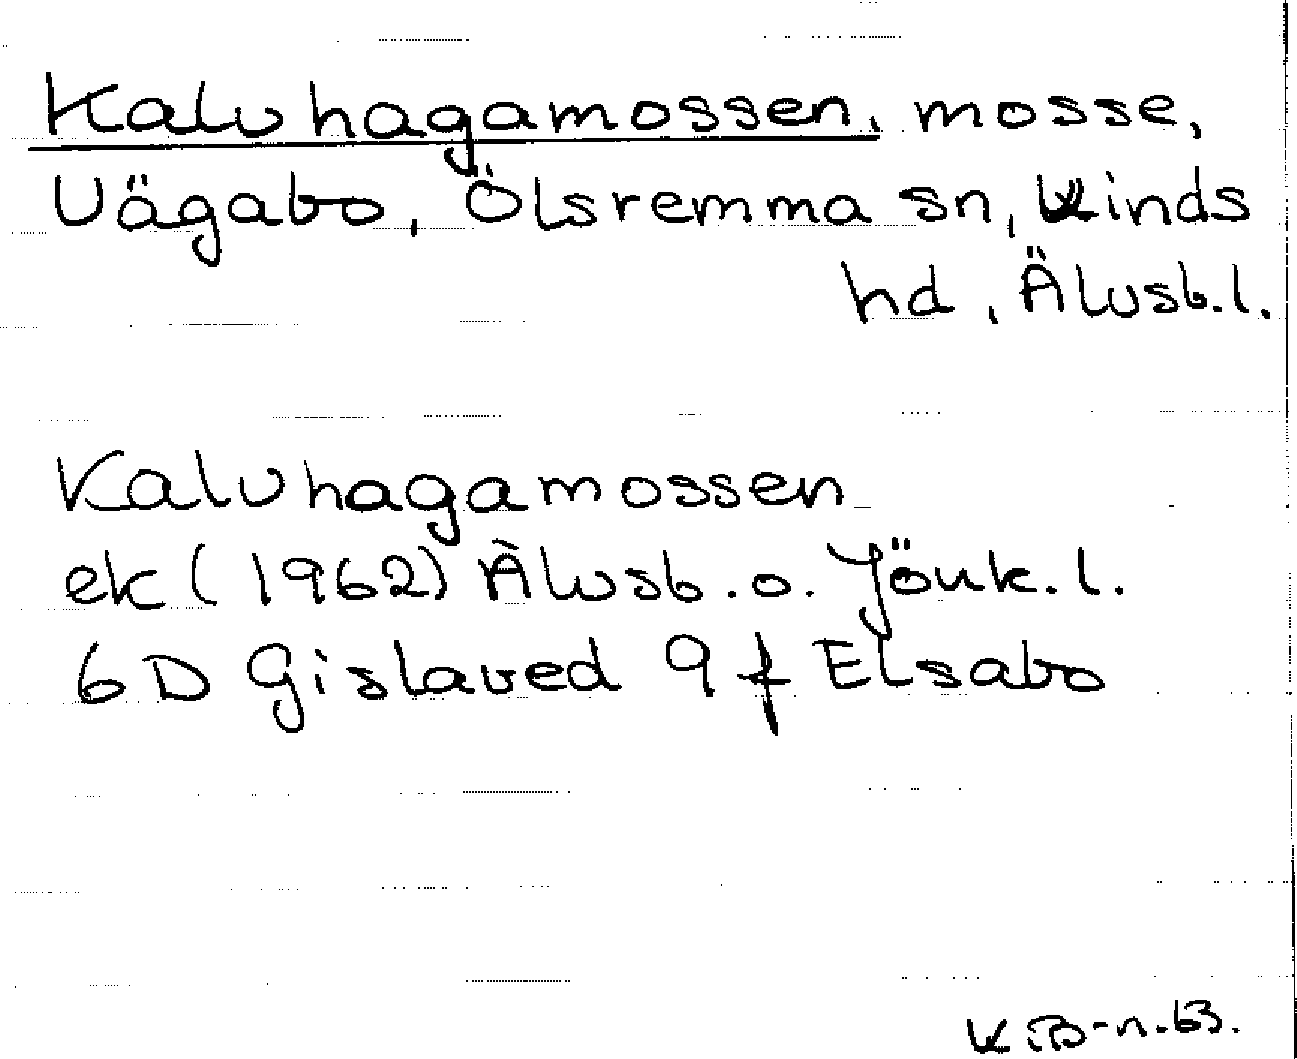 Kalvhagamossen, mosse,
Vägabo, Ölsremma sn, Kinds
hd, Älvsb.l.
Kalvhagamossen
ek (1962) Älvsb. o. Jönk. l.
6D Gislaved 9 f Elsabo
K.B-n.63.